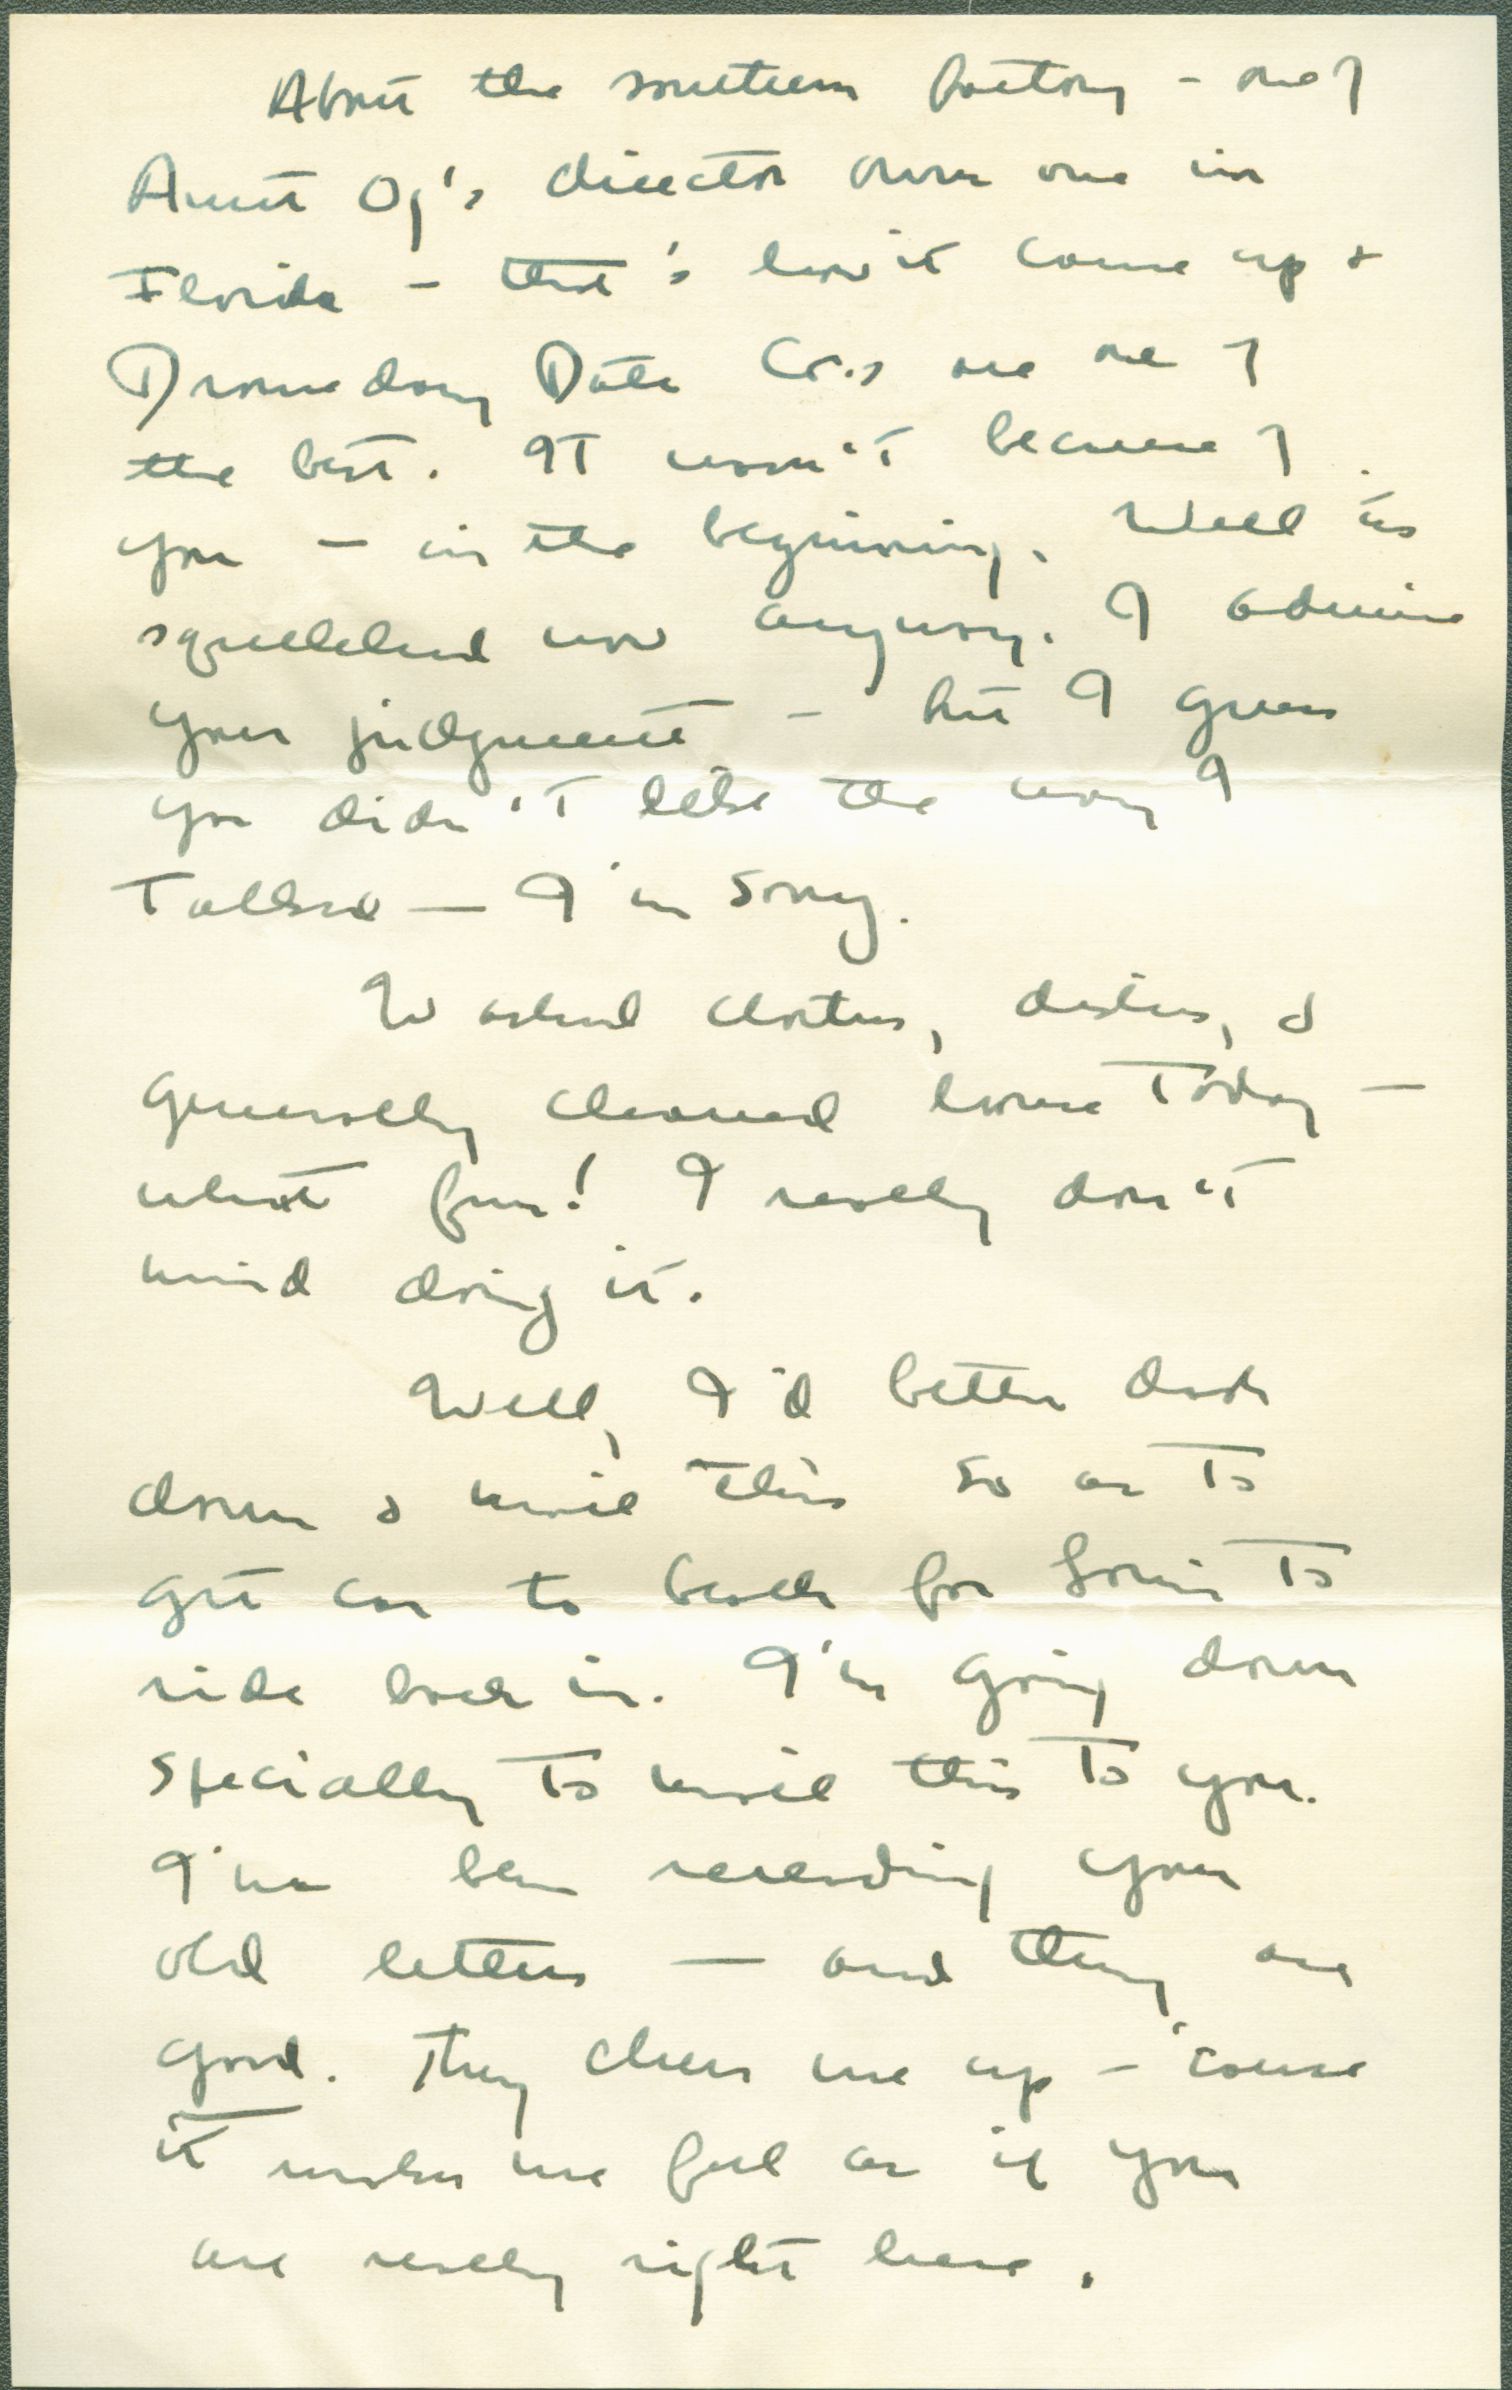 About the southern factory - one of
Aunt Oj's director owns one in
Florida - that's how it came up &
Dromedary Date Co.s are one of
the best. It wasn't because of
you - in the beginning. Well its
squelched now anyway. I admire
your judgment - but I guess
you didn't like the way I
talked — I'm sorry.
Washed clothes, dishes, &
generally cleaned house today -
what fun! I really don't
mind doing it.
Well, I'd better dash
down & mail this so as to
get car to beach for to
ride back in. I'm going down
specially to mail this to you.
I've been rereading your
old letters — and they are
good. They cheer me up - 'cause
it makes me feel as if you
are really right here.